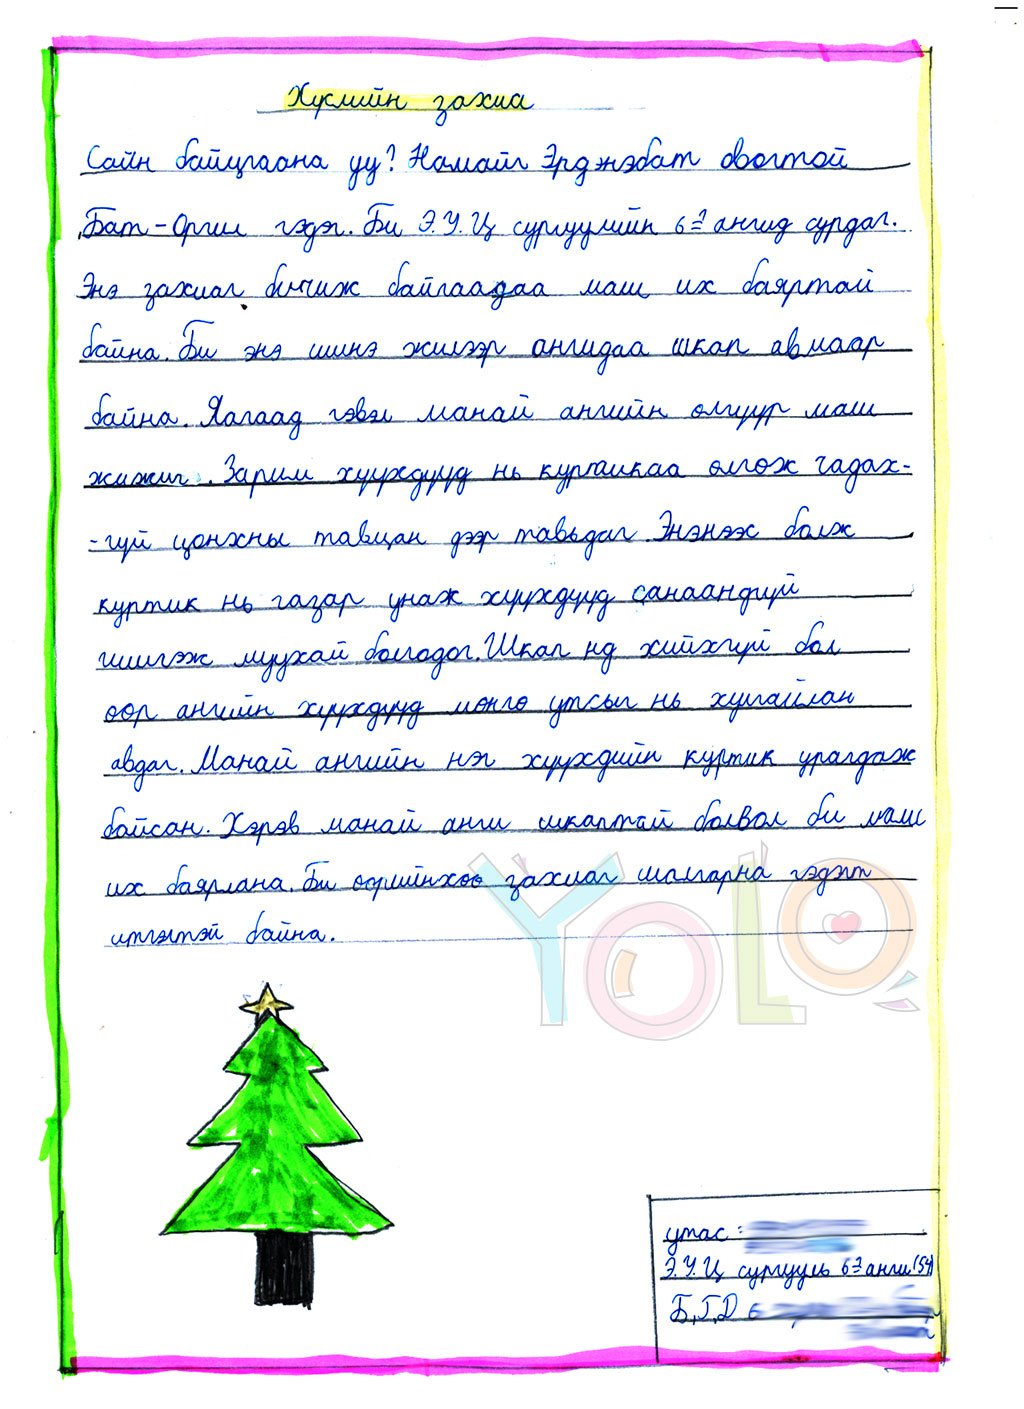 Хүслийн захиа
Сайн байцгаана уу? Намайг Эрдэнэбат овогтой
Бат-Оргил гэдэг. Би Э.У.Ц сургуулийн 6-р ангид сурдаг.
Энэ захиаг бичиж байгаадаа маш их баяртай
байна. Би энэ шинэ жилээр ангидаа шкап авмаар
байна. Яагаад гэвэл манай ангийн өлгүүр маш
жижиг. Зарим хүүхдүүд нь куртикаа өлгөж чадах-
-гүй цонхны тавцан дээр тавьдаг. Энэнээх болж
куртик нь газар унаж хүүхдүүд санаандгүй
гишгэж муухай болгодог. Шкап нд хийхгүй бол
өөр ангийн хүүхдүүд мөнгө утсыг нь хулгайлан
авдаг. Манай ангийн нэг хүүхдийн куртик урагдаж
байсан. Хэрэв манай анги шкаптай болвол би маш
их баярлана. Би өөрийнхөө захиаг шалгарна гэдэгт
итгэлтэй байна.
YOLO
утас:
Э.У.Ц сургууль анги (54)
Б,Г,Д 6